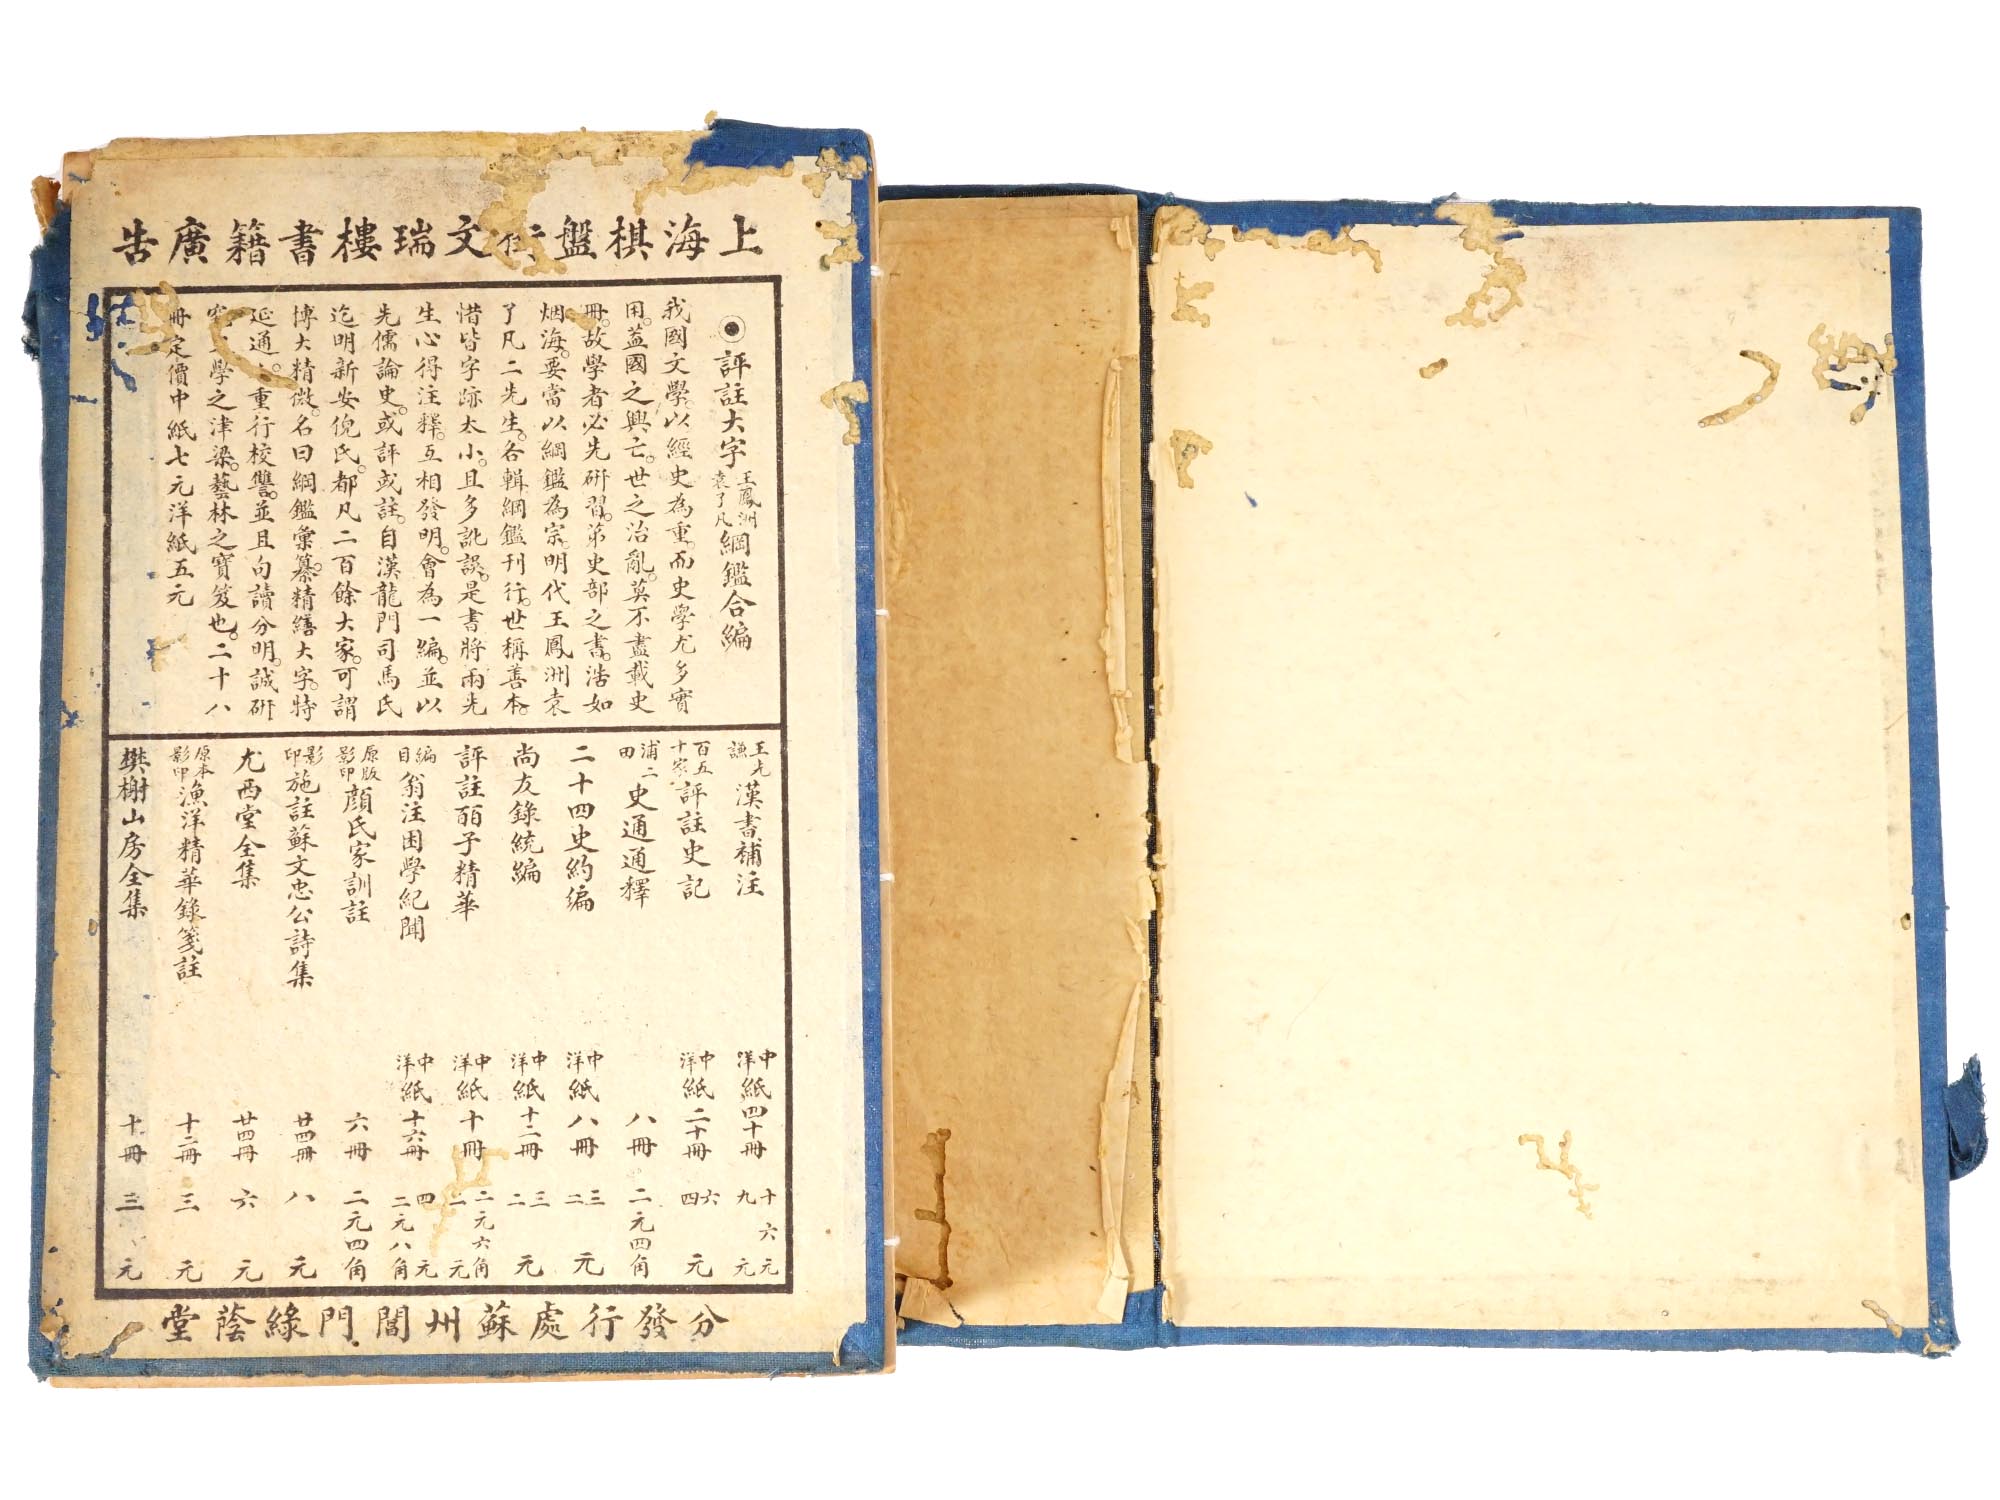 上海棋盤街文瑞樓書籍廣告
評註大字王鳳洲袁了凡綱鑑合編
我國文學。以經史為重。而史學尤多實
用。蓋國之興亡。世之治亂。莫不盡載史
冊。故學者必先研習。第史部之書。浩如
烟海。要當以綱鑑為宗。明代王鳳洲袁
了凡二先生。各輯綱鑑刊行。世稱善本。
惜皆字跡太小。且多訛誤。是書將兩先
生心得注釋。互相發明。會為一編。並以
先儒論史。或評或註。自漢龍門司馬氏
迄明新安倪氏。都凡二百餘大家。可謂
博大精微。名曰綱鑑彙纂。精繕大字。特
延通 重行校讐。並且句讀分明。誠研
究 學之津梁。藝林之寶笈也。二十八
冊定價中紙七元洋紙五元
王先謙漢書補注 中洋紙四十冊 十六元 九元
百五十家評註史記 中洋紙二十冊 六四元
浦二田史通通釋 八冊 二元四角
二十四史約編 中洋紙八冊 三二元
尚友錄統編 中洋紙十二冊 三二元
評註百子精華 中洋紙十冊 二元六角 二元
編目翁注困學紀聞 中洋紙十六冊 四元 二元八角
原版影印顏氏家訓註 六冊 二元四角
影印施註蘇文忠公詩集 廿四冊 八元
尤西堂全集 廿四冊 六元
原本影印漁洋精華錄箋註 十二冊 三元
樊榭山房全集 十冊 三元
分發行處蘇州閶門綠蔭堂